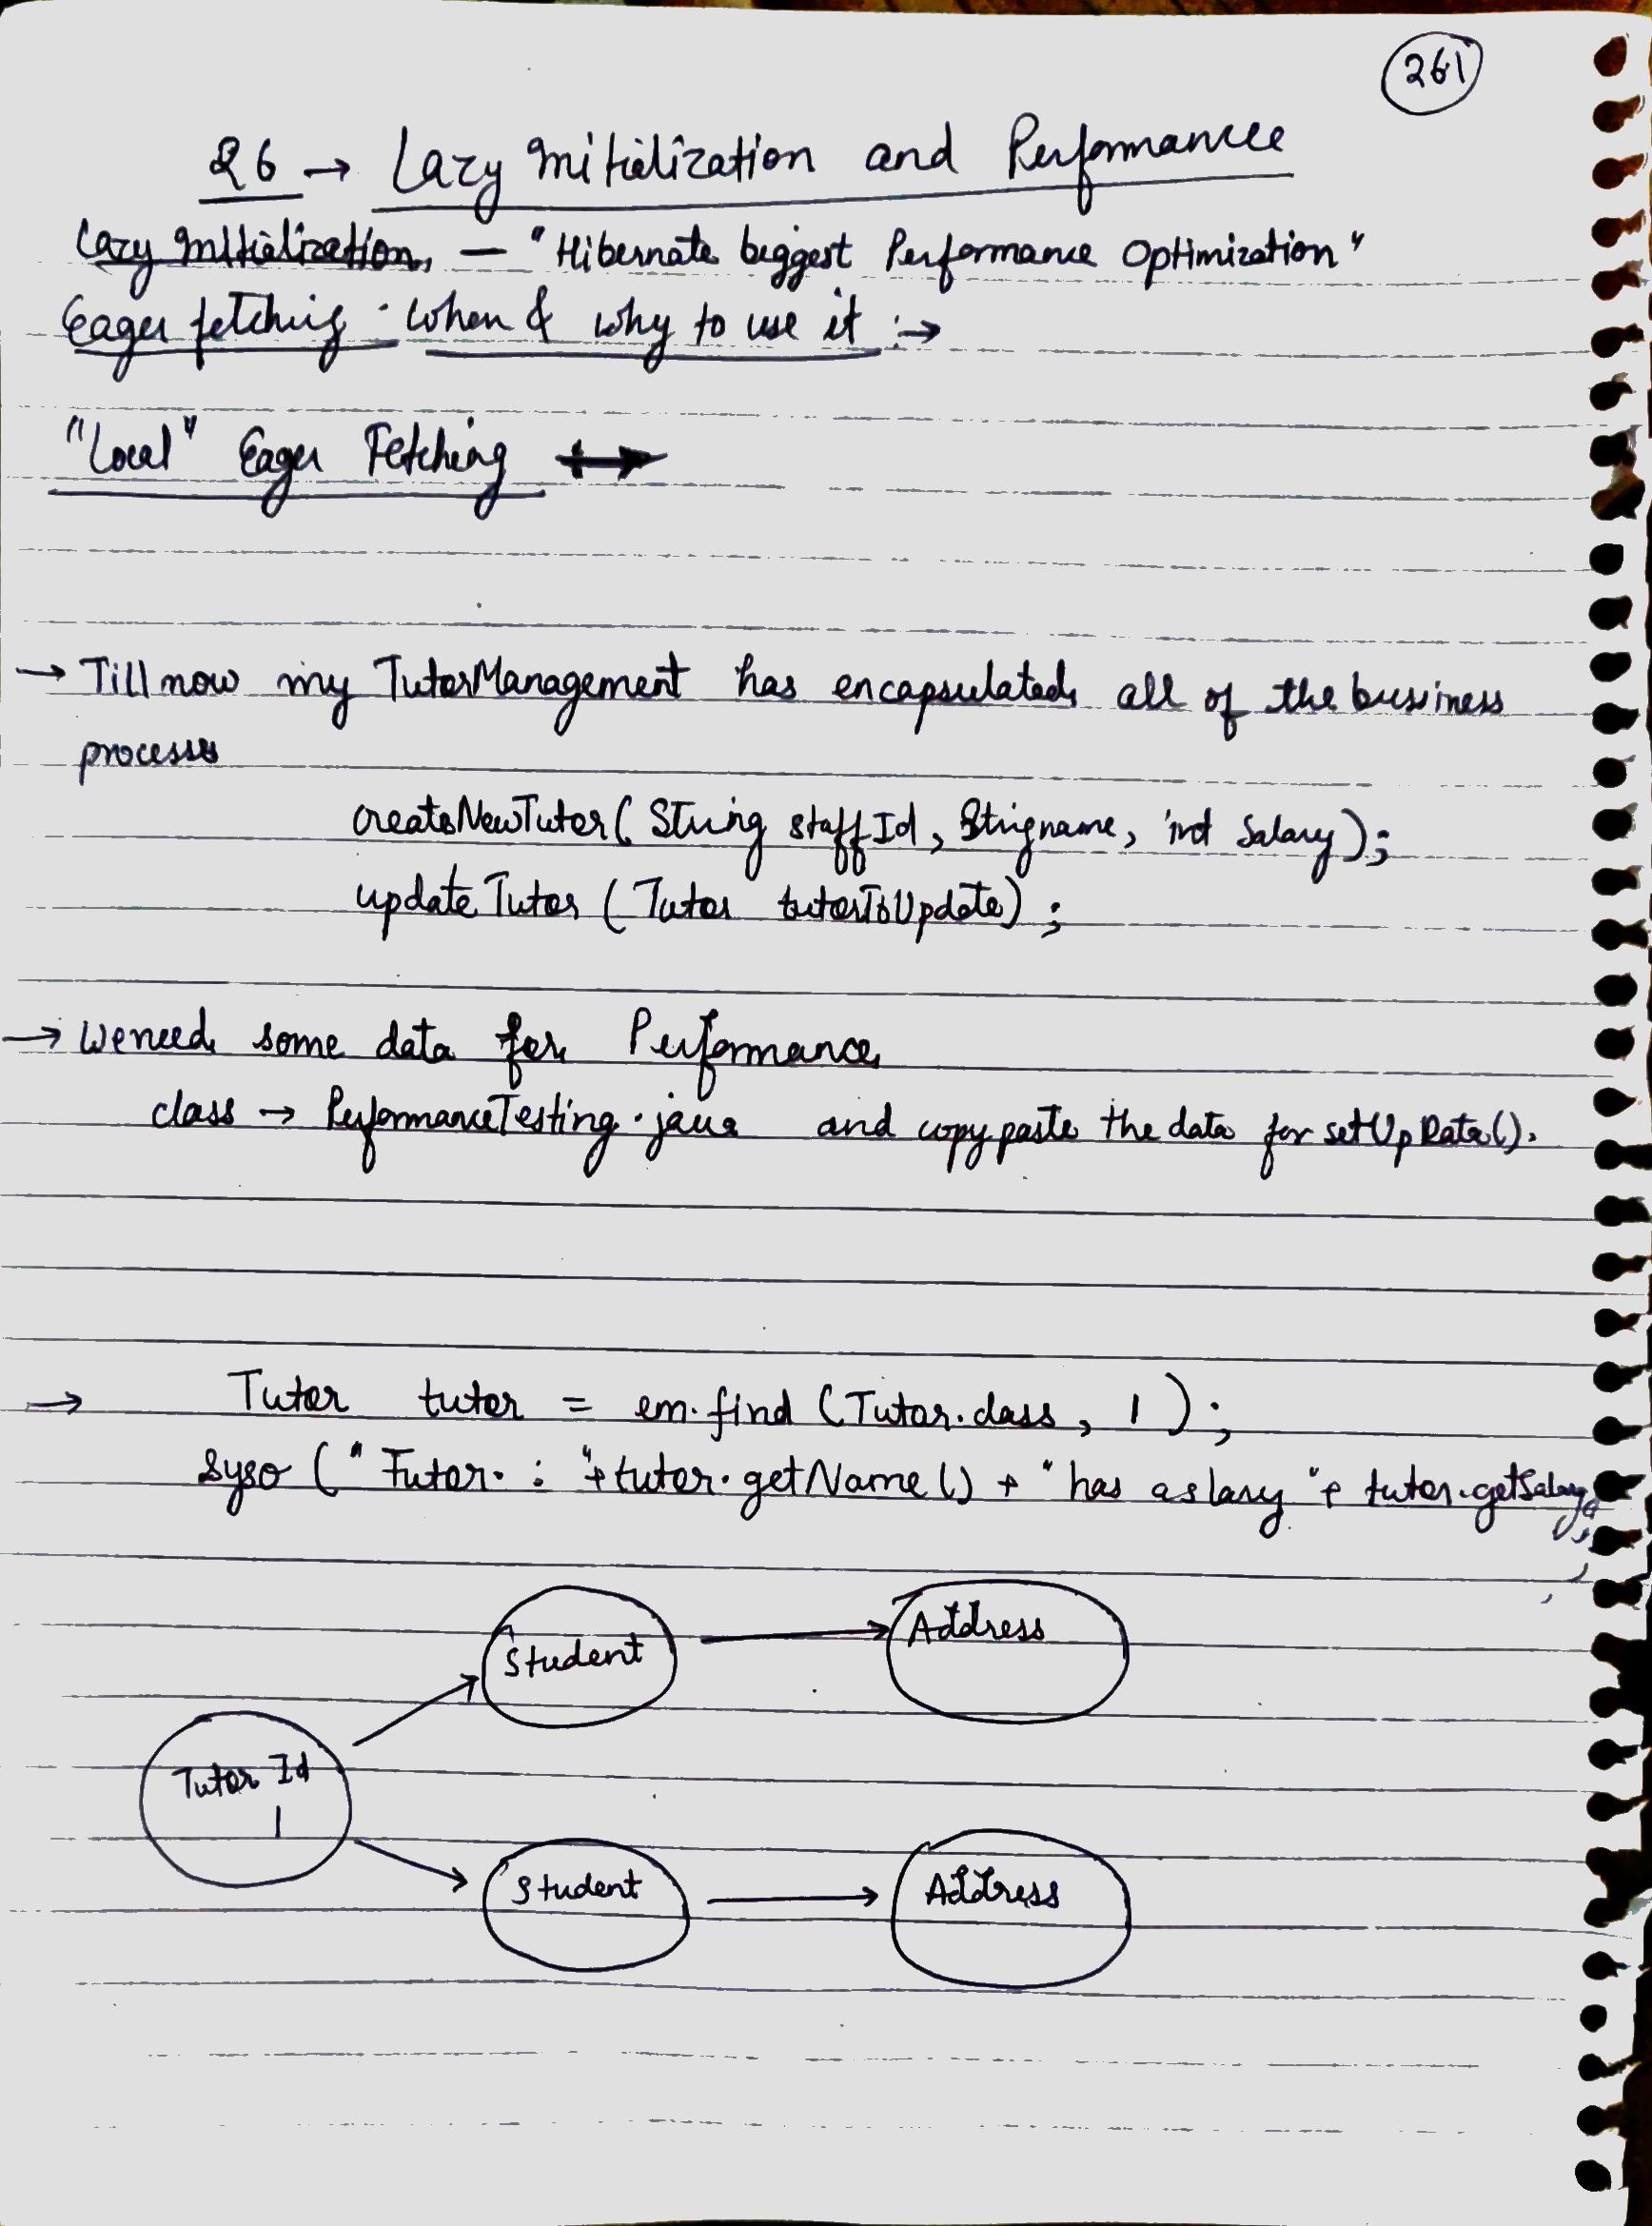 261
26 → Lazy Initialization and Performance
Lazy Initialization, — "Hibernate biggest Performance Optimization"
Eager fetching · When & why to use it :→
"Local" Eager Fetching →
→ Till now my TutorManagement has encapsulated all of the bussiness
processes
createNewTutor( String staffId, String name, int Salary);
updateTutor (Tutor tutorToUpdate) ;
→ We need some data for Performance
class → PerformanceTesting.java and copy paste the data for setUpData().
→ Tutor tutor = em.find (Tutor.class, 1 ) ;
Syso ( " Tutor. : "+ tutor.getName() + " has aslary "+ tutor.getSalary());
Student → Address
Tutor Id
1
Student → Address